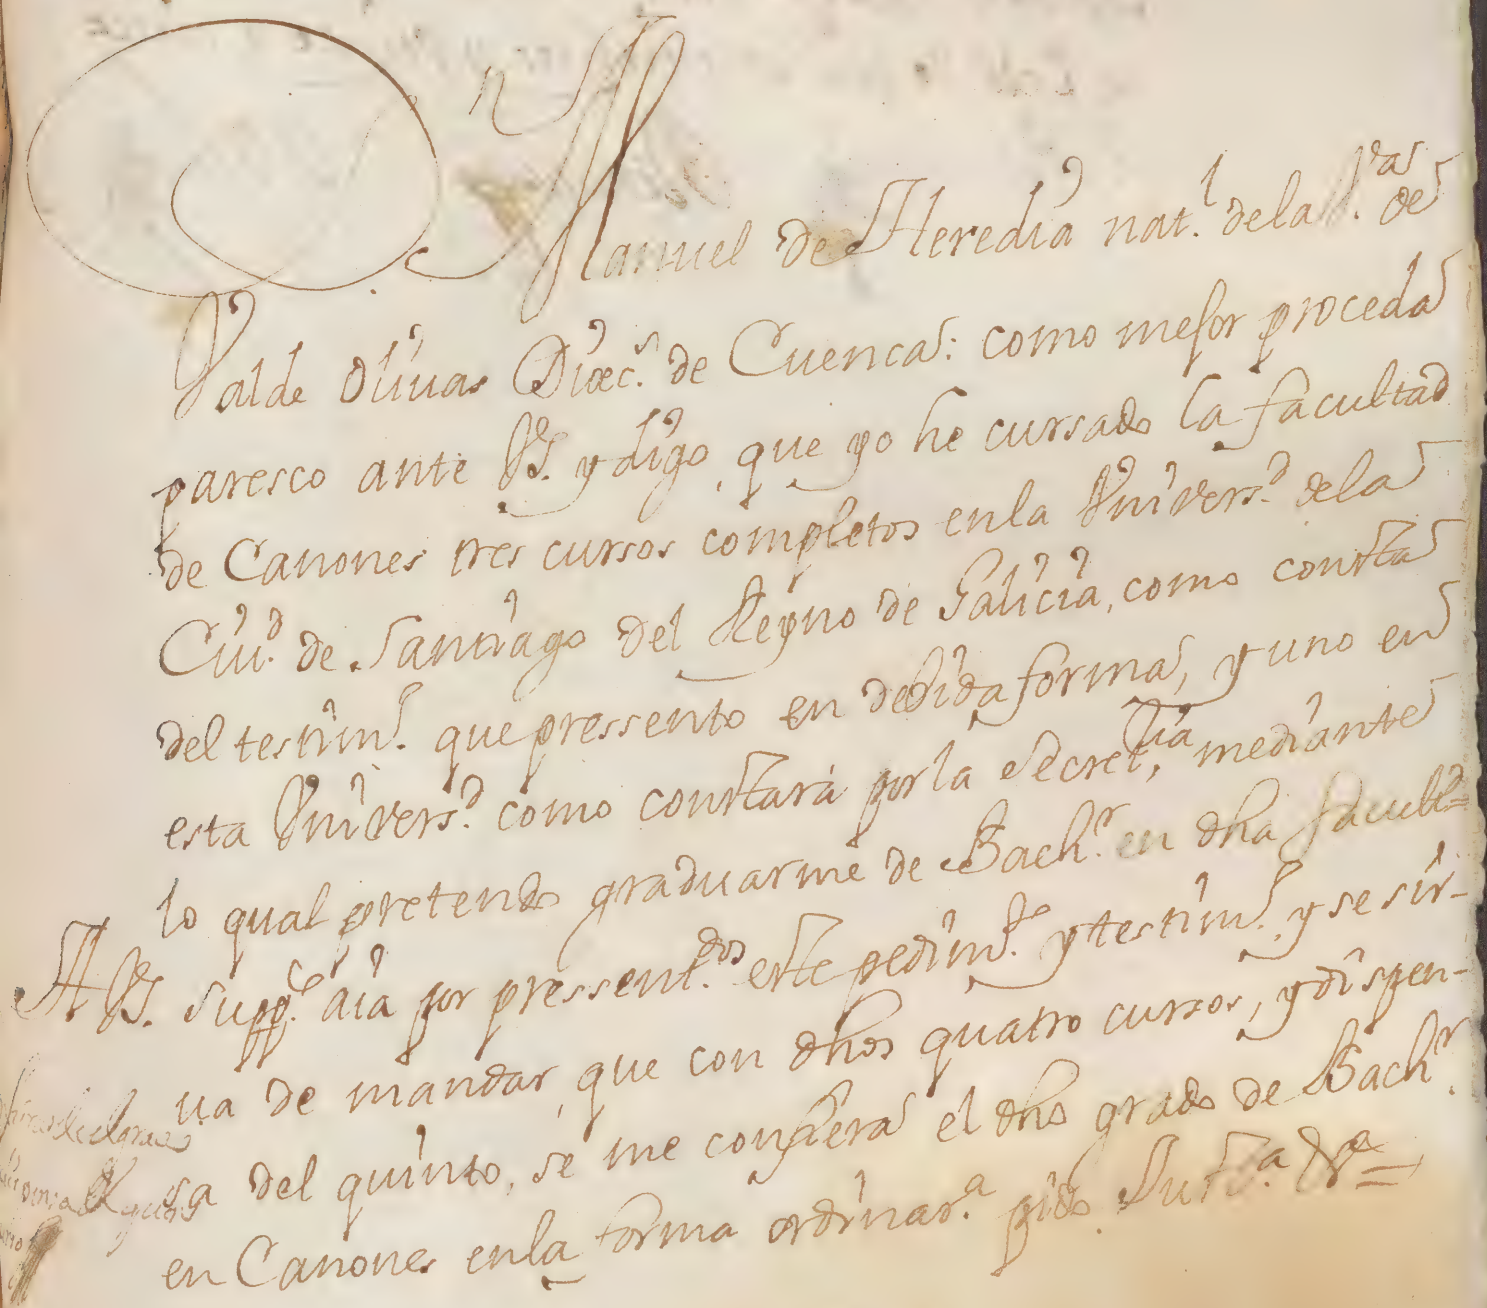 Manuel de Heredia nat.l dela V.a de
Valde Olivas Dioec.s de Cuenca: como mejor proceda
paresco ante VS. y digo, que yo he cursado la facultad
de Canones tres cursos completos enla Vnivers.d dela
Ciu.d de Santiago del Reyno de Galicia, como consta
del testim.o que pressento en debida forma, y uno en
esta Vnivers.d como constará por la Secret.ria, mediante
lo qual pretendo graduarme de Bach.r en dha facult.d=
A VS. supp.co aia por pressent.dos este pedim.to y testim.o, y se sir-
va de mandar, que con dhos quatro cursos, y dispen-
sa del quinto, se me confiera el dho grado de Bach.r
en Canones enla forma ordinar.a pido Just.a V.a=